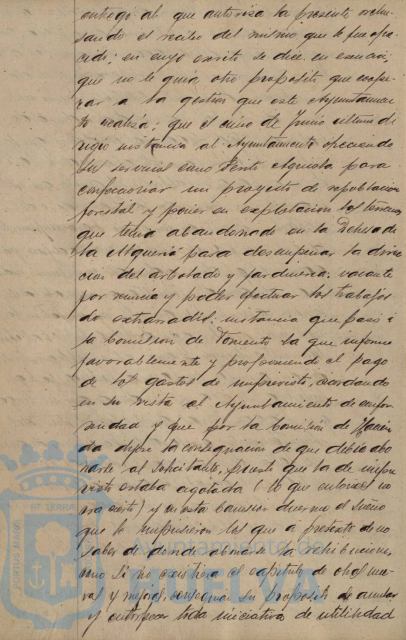 entregó al que autoriza la presente
sando el recibo del mismo que le fue
cido; en cuyo escrito se dice en esencia,
que no le guia otro proposito que cooper
rar a la gestion que este Ayuntamien
to realiza; que el cinco de Junio ultimo di
rigio instancia al Ayuntamiento ofreciendo
sus servicios como Perito Agricola para
confeccionar un proyecto de repoblacion
forestal y poner en explotacion los terrenos
que tenia abandonado en la Dehesa de
la Alqueria para desempeñar la direc
cion del arbolado y jardineria, vacante
por renuncia y poder efectuar los trabajos
do instancia que pasó á
la Comision de Fomento la que informó
favorablemente y proponiendo el pago
de los gastos de imprevistos, acordando
en su vista el Ayuntamiento de confor
midad y que por la Comision de Hacien
da dijese la consignacion de que debia abo
narse al solicitante, puesto que la de impre
vistos estaba agotada (lo que entonces no
era cierto) y en esta Comision duerme el sueño
que le impusieron los que a pretesto de no
saber de donde abonarse la retribucion,
como si no existiera el capitulo de obras nue
vas y mejoras, consiguieron su proposito de anular
y entorpecer toda iniciativa de utilidad
PORTUS MARIS
ET TERRA
Ayuntamiento de
HUELVA